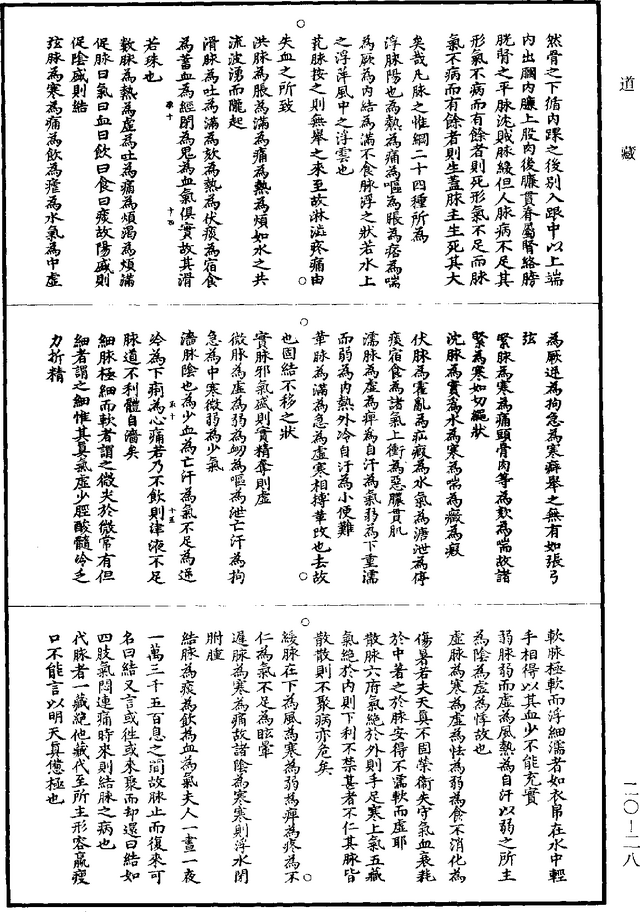 道藏
然骨之下循內踝之後別入跟中以上端
內出膕內臁上股內後臁貫脊屬腎絡膀
胱腎之平脉沈賊脉緩但人脉病不足其
形氣不病而有餘者則死形氣不足而脉
氣不病而有餘者則生蓋脉主生死其大
矣哉凡脉之惟綱二十四種所為
浮脉陽也為熱為痛為嘔為脹為痞為喘
為厥為內結為滿不食脉浮之狀若水上
之浮萍風中之浮雲也
芤脉按之則無舉之來至故淋澁疼痛由
失血之所致
洪脉為脹為滿為痛為熱為煩如水之共
流波湧而隴起
滑脉為吐為滿為欬為熱為伏痰為宿食
為蓄血為經閉為鬼為血氣俱實故其滑
若珠也
數脉為熱為虛為吐為痛為煩渴為煩滿
促陰盛則結
促脉曰氣曰血曰飲曰食曰痰故陽盛則
弦脉為寒為痛為飲為瘧為水氣為中虛
為厥逆為拘急為寒癖舉之無有如張弓
弦
緊脉為寒為痛頭骨肉等為欬為喘故諸
緊為寒如切繩狀
沈脉為實為水為寒為喘為癥為瘕
伏脉為霍亂為疝瘕為水氣為溏泄為停
痰宿食為諸氣上衝為惡膿貫肌
濡脉為虛為痹為自汗為氣弱為下重濡
而弱為內熱外冷自汗為小便難
革脉為滿為急為虛寒相摶革改也去故
也固結不移之狀
實脉邪氣盛則實精奪則虛
微脉為虛為弱為衂為嘔為泄亡汗為拘
急為中寒微弱為少氣
濇脉陰也為少血為亡汗為氣不足為逆
冷為下痢為心痛若乃不飲則津液不足
脉道不利體自濇矣
細脉極細而軟者謂之微尖於微常有但
細者謂之細惟其真氣虛少脛酸髓冷乏
力折精
軟脉極軟而浮細濡者如衣帛在水中輕
手相得以其血少不能充實
弱脉弱而虛為風熱為自汗以弱之所主
為陰為虛為悸故也
虛脉為寒為虛為怯為弱為食不消化為
傷暑若夫天真不固榮衛失守氣血衰耗
於中著之於脉安得不濡軟而虛耶
散脉六府氣絕於外則手足寒上氣五藏
氣絕於內則下利不禁甚者不仁其脉皆
散散則不聚病亦危矣
緩脉在下為風為寒為弱為痹為疼為不
仁為氣不足為眩暈
遲脉為寒為痛故諸陰為寒寒則浮水閉
胕腫
結脉為痰為飲為血為氣夫人一晝一夜
一萬三千五百息之間故脉止而復來可
名曰結又言或徃或來聚而却還曰結如
四肢氣悶連痛時來則結脉之病也
代脉者一藏絕他藏代至所主形容羸瘦
口不能言以明天真憊極也
二〇—二八